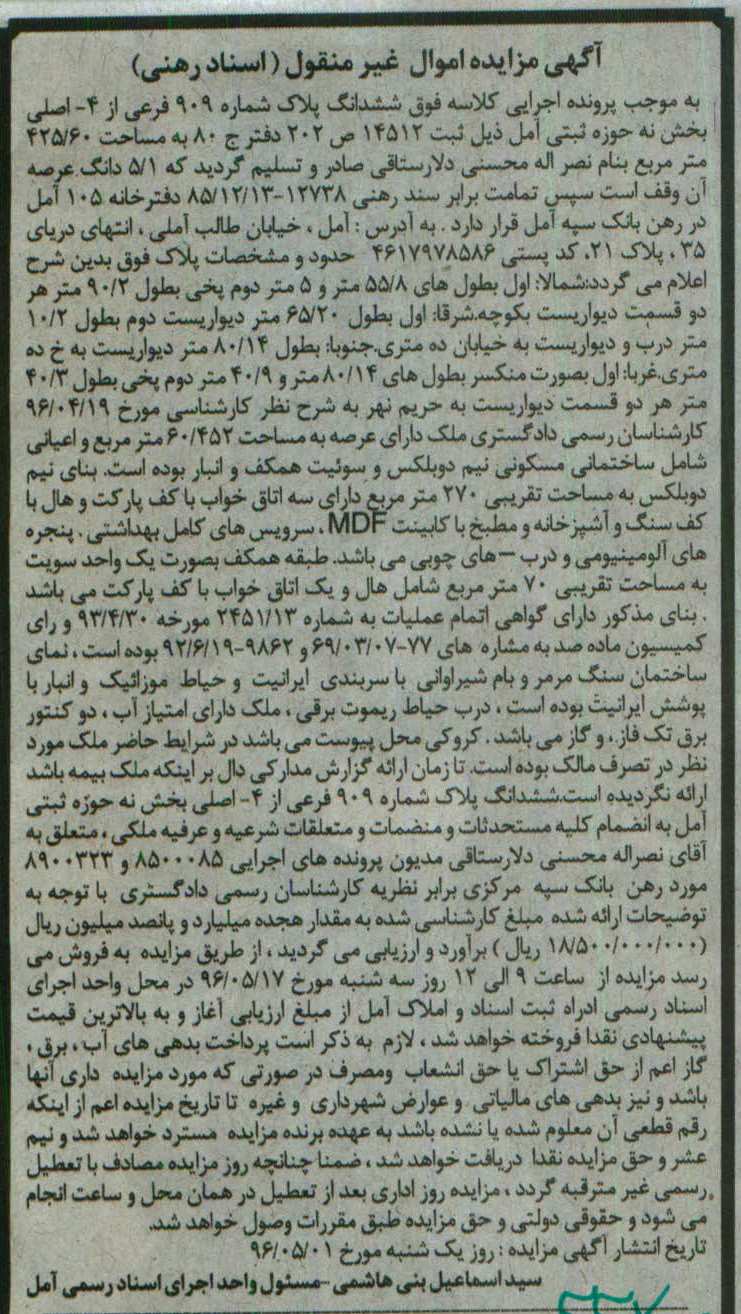 آگهی مزایده اموال غیر منقول (اسناد رهنی)
به موجب پرونده اجرایی کلاسه فوق ششدانگ پلاک شماره ۹۰۹ فرعی از ۴- اصلی
بخش نه حوزه ثبتی آمل ذیل ثبت ۱۴۵۱۲ ص ۲۰۲ دفتر ج ۸۰ به مساحت ۴۲۵/۶۰
متر مربع بنام نصر اله محسنی دلارستاقی صادر و تسلیم گردید که ۵/۱ دانگ عرصه
آن وقف است سپس تمامت برابر سند رهنی ۱۲۷۳۸-۸۵/۱۲/۱۳ دفترخانه ۱۰۵ آمل
در رهن بانک سپه آمل قرار دارد . به آدرس : آمل ، خیابان طالب آملی ، انتهای دریای
۳۵ ، پلاک ۲۱، کد پستی ۴۶۱۷۹۷۸۵۸۶ حدود و مشخصات پلاک فوق بدین شرح
اعلام می گردد:شمالا: اول بطول های ۵۵/۸ متر و ۵ متر دوم پخی بطول ۹۰/۲ متر هر
دو قسمت دیواریست بکوچه.شرقا: اول بطول ۶۵/۲۰ متر دیواریست دوم بطول ۱۰/۲
متر درب و دیواریست به خیابان ده متری.جنوبا: بطول ۸۰/۱۴ متر دیواریست به خ ده
متری.غربا: اول بصورت منکسر بطول های ۸۰/۱۴ متر و ۴۰/۹ متر دوم پخی بطول ۴۰/۳
متر هر دو قسمت دیواریست به حریم نهر به شرح نظر کارشناسی مورخ ۹۶/۰۴/۱۹
کارشناسان رسمی دادگستری ملک دارای عرصه به مساحت ۶۰/۴۵۲ متر مربع و اعیانی
شامل ساختمانی مسکونی نیم دوبلکس و سوئیت همکف و انبار بوده است. بنای نیم
دوبلکس به مساحت تقریبی ۲۷۰ متر مربع دارای سه اتاق خواب با کف پارکت و هال با
کف سنگ و آشپزخانه و مطبخ با کابینت MDF ، سرویس های کامل بهداشتی . پنجره
های آلومینیومی و درب –های چوبی می باشد. طبقه همکف بصورت یک واحد سویت
به مساحت تقریبی ۷۰ متر مربع شامل هال و یک اتاق خواب با کف پارکت می باشد
. بنای مذکور دارای گواهی اتمام عملیات به شماره ۲۴۵۱/۱۳ مورخه ۹۳/۴/۳۰ و رای
کمیسیون ماده صد به مشاره های ۷۷-۶۹/۰۳/۰۷ و ۹۸۶۲-۹۲/۶/۱۹ بوده است ، نمای
ساختمان سنگ مرمر و بام شیراوانی با سربندی ایرانیت و حیاط موزائیک و انبار با
پوشش ایرانیت بوده است ، درب حیاط ریموت برقی ، ملک دارای امتیاز آب ، دو کنتور
برق تک فاز ، و گاز می باشد . کروکی محل پیوست می باشد در شرایط حاضر ملک مورد
نظر در تصرف مالک بوده است. تا زمان ارائه گزارش مدارکی دال بر اینکه ملک بیمه باشد
ارائه نگردیده است.ششدانگ پلاک شماره ۹۰۹ فرعی از ۴- اصلی بخش نه حوزه ثبتی
آمل به انضمام کلیه مستحدثات و منضمات و متعلقات شرعیه و عرفیه ملکی ، متعلق به
آقای نصراله محسنی دلارستاقی مدیون پرونده های اجرایی ۸۵۰۰۰۸۵ و ۸۹۰۰۳۲۳
مورد رهن بانک سپه مرکزی برابر نظریه کارشناسان رسمی دادگستری با توجه به
توضیحات ارائه شده مبلغ کارشناسی شده به مقدار هجده میلیارد و پانصد میلیون ریال
(۱۸/۵۰۰/۰۰۰/۰۰۰ ریال ) برآورد و ارزیابی می گردید ، از طریق مزایده به فروش می
رسد مزایده از ساعت ۹ الی ۱۲ روز سه شنبه مورخ ۹۶/۰۵/۱۷ در محل واحد اجرای
اسناد رسمی ادراه ثبت اسناد و املاک آمل از مبلغ ارزیابی آغاز و به بالاترین قیمت
پیشنهادی نقدا فروخته خواهد شد ، لازم به ذکر است پرداخت بدهی های آب ، برق ،
گاز اعم از حق اشتراک یا حق انشعاب ومصرف در صورتی که مورد مزایده داری آنها
باشد و نیز بدهی های مالیاتی و عوارض شهرداری و غیره تا تاریخ مزایده اعم از اینکه
رقم قطعی آن معلوم شده یا نشده باشد به عهده برنده مزایده مسترد خواهد شد و نیم
عشر و حق مزایده نقدا دریافت خواهد شد ، ضمنا چنانچه روز مزایده مصادف با تعطیل
رسمی غیر مترقبه گردد ، مزایده روز اداری بعد از تعطیل در همان محل و ساعت انجام
می شود و حقوقی دولتی و حق مزایده طبق مقررات وصول خواهد شد.
تاریخ انتشار آگهی مزایده : روز یک شنبه مورخ ۹۶/۰۵/۰۱
سید اسماعیل بنی هاشمی -مسئول واحد اجرای اسناد رسمی آمل